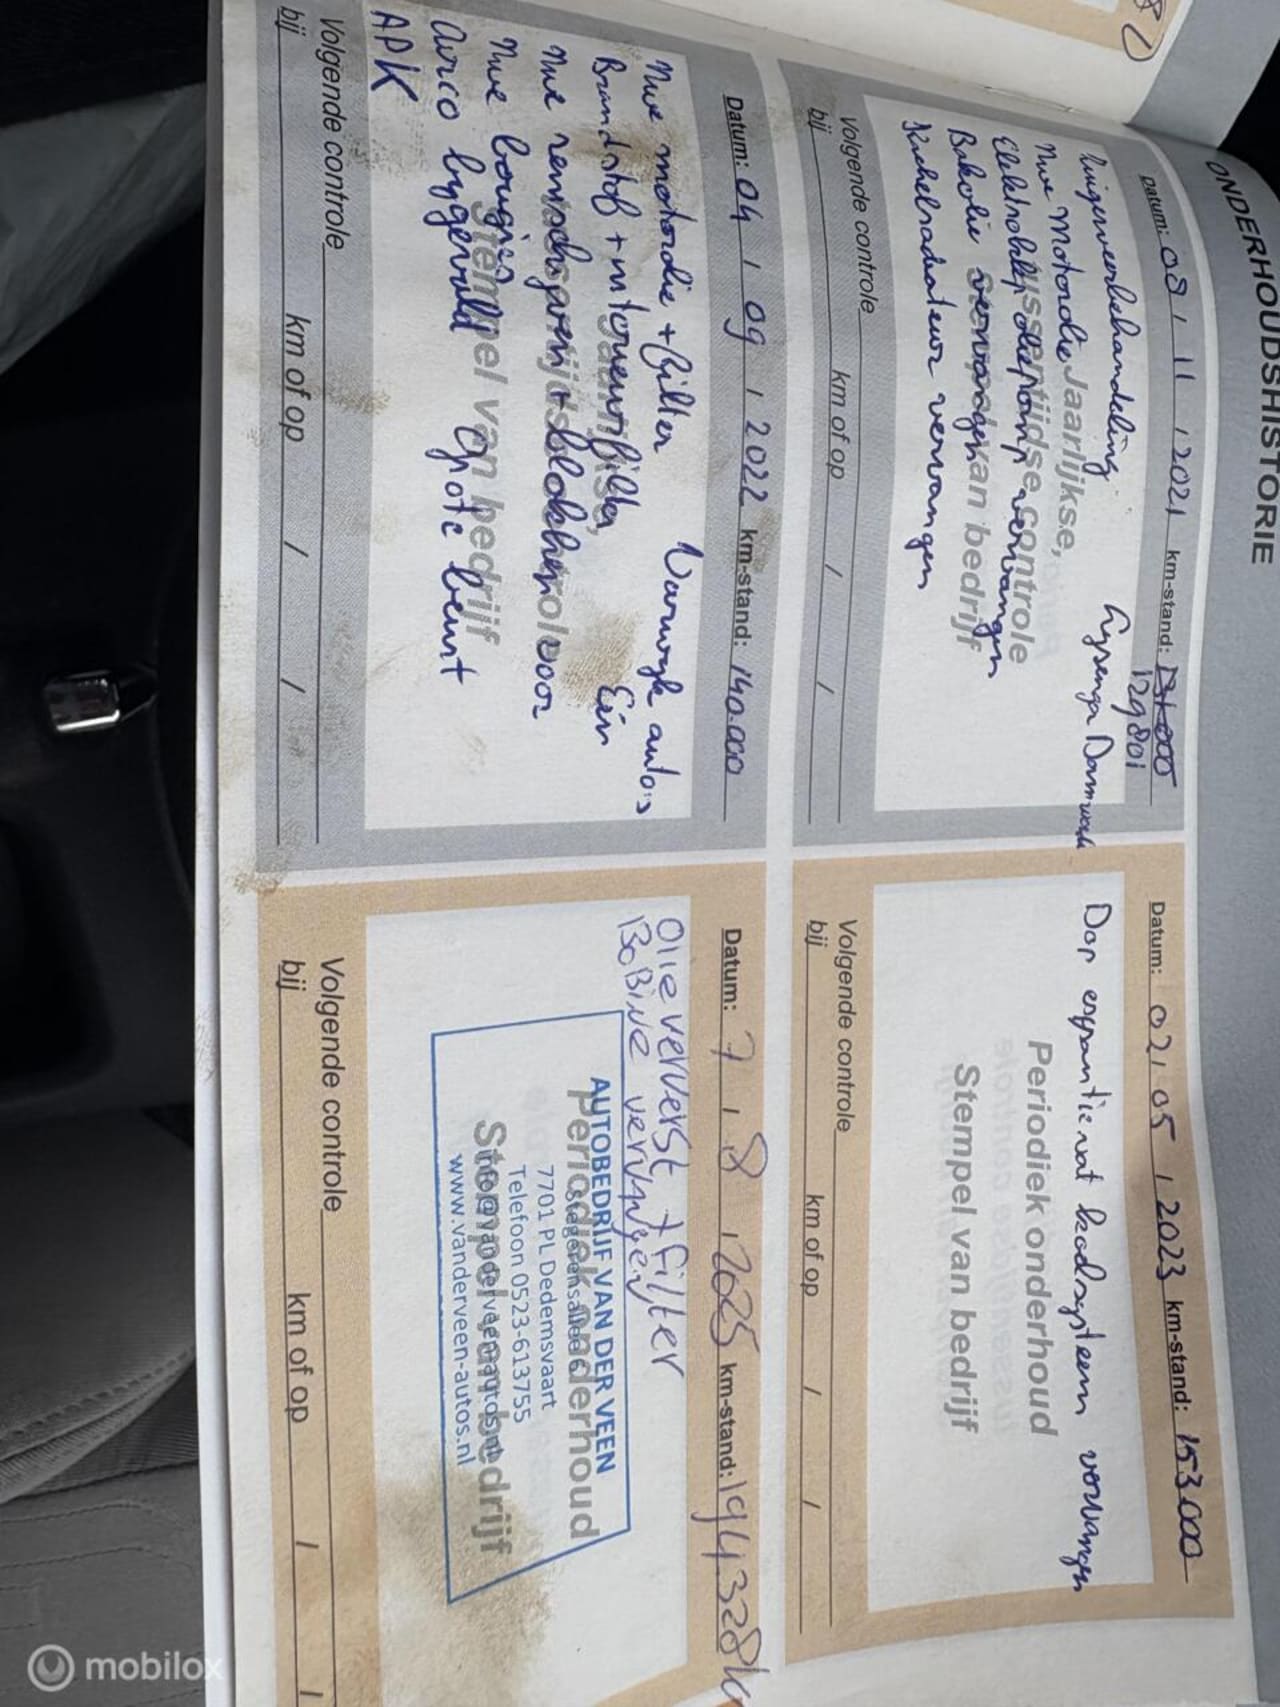 ONDERHOUDSHISTORIE
Datum: 08 / 11 / 2021 km-stand: 131.000
129801
Nwe Motorolie
Jaarlijkse,
tussentijdse controle
Stempel van bedrijf
Elektroklep oliepomp vervangen
Bakolie vervangen
Kachelradiateur vervangen
Volgende controle
bij km of op / /
Datum: 04 / 09 / 2022 km-stand: 140.000
Nwe motorolie + filter
Brandstof + interieurfilter
Nwe remschijven + blokken voor
Nwe bougies
Airco bijgevuld Grote beurt
APK
Stempel van bedrijf
Volgende controle
bij km of op / /
Datum: 02 / 05 / 2023 km-stand: 153000
Dop expantievat koelsysteem vervangen
Periodiek onderhoud
Stempel van bedrijf
Volgende controle
bij km of op / /
Datum: 7 / 8 / 2025 km-stand: 194.328
Olie ververst + filter
BoBine vervangen
AUTOBEDRIJF VAN DER VEEN
7701 PL Dedemsvaart
Telefoon 0523-613755
info@vanderveen-autos.nl
www.vanderveen-autos.nl
Periodiek onderhoud
Stempel van bedrijf
Volgende controle
bij km of op / /
mobilox